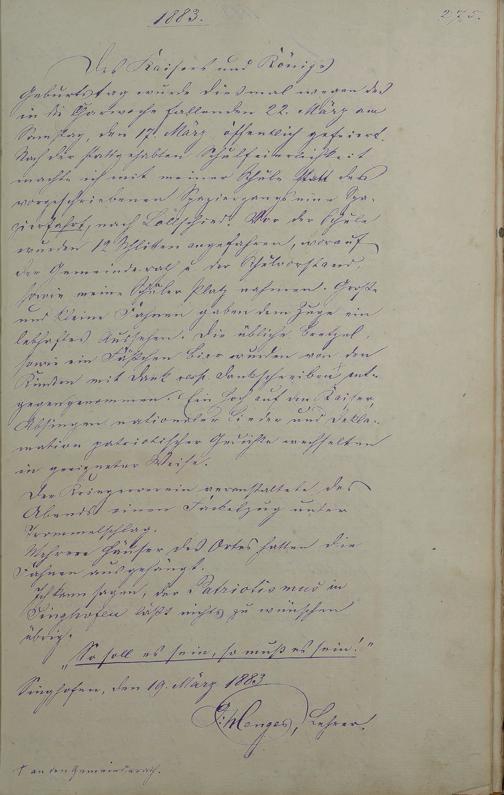 1883.
275.
Des Kaisers und Königs
Geburtstag wurde diesmal wegen des
in die Charwoche fallenden 22. März am
Samstag, den 17. März öffentlich gefeiert.
Nach der stattgehabten Schulfeierlichkeit
machte ich mit meiner Schule statt des
vorgeschriebenen Spaziergangs eine Spa-
zierfahrt, nach Lollschied. Vor der Schule
wurden 12 Schlitten angefahren, worauf
der Gemeinderat u. der Schulvorstand,
sowie meine Schüler Platz nahmen. Große
und kleine Fahnen gaben dem Zuge ein
lebhaftes Aussehen. Die übliche Bretzel,
sowie ein Fäßchen Bier wurden von den
Kindern mit Dank resp. Dankschreiben† ent-
gegengenommen. Ein Hoch auf den Kaiser,
Absingen nationaler Lieder und Dekla-
mation patriotischer Gedichte wechselten
in geeigneter Weise.
Der Kriegerverein veranstaltete des
Abends einen Fackelzug unter
Trommelschlag.
Mehrere Häuser des Ortes hatten die
Fahnen ausgehängt.
Ich kann sagen, der Patriotismus in
Singhofen läßt nichts zu wünschen
übrig.
„So soll es sein, so muß es sein!"
Singhofen, den 19. März 1883
Menges, Lehrer.
† an den Gemeinderath.